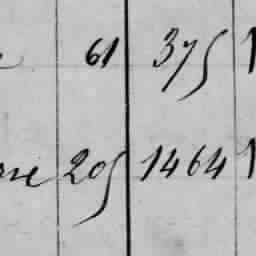 61 375
205 1464